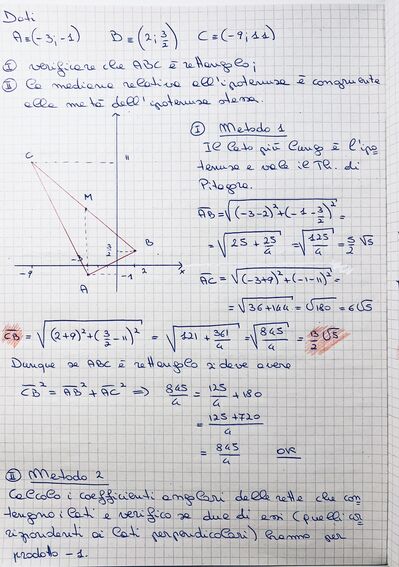 Dati
A≡(-3;-1) B≡(2;3/2) C≡(-9;11)
I verificare che ABC è rettangolo;
II la mediana relativa all'ipotenusa è congruente
alla metà dell'ipotenusa stessa.
I Metodo 1
Il lato più lungo è l'ipo-
tenusa e vale il Th. di
Pitagora.
C
11
M
3/2
B
-9
-3
-1
2
x
A
AB=√((-3-2)²+(-1-3/2)²)=
=√(25+25/4)=√(125/4)=5/2√5
AC=√((-3+9)²+(-1-11)²)=
=√(36+144)=√180=6√5
CB=√((2+9)²+(3/2-11)²)=√(121+361/4)=√(845/4)=13/2√5
Dunque se ABC è rettangolo si deve avere
CB²=AB²+AC² ⇒ 845/4=125/4+180
=(125+720)/4
=845/4 OK
II Metodo 2
Calcolo i coefficienti angolari delle rette che con-
tengono i lati e verifico se due di essi (quelli cor-
rispondenti ai lati perpendicolari) hanno per
prodotto -1.